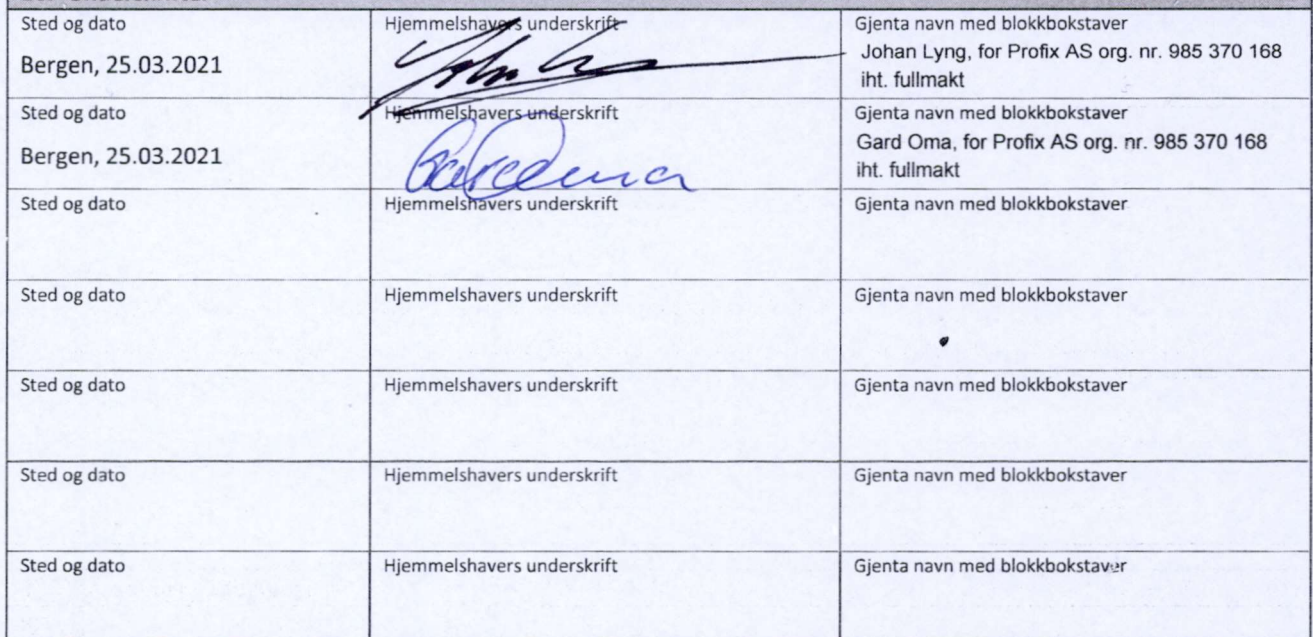 Sted og dato
Hjemmelshavers underskrift
Gjenta navn med blokkbokstaver
Bergen, 25.03.2021
Johan Lyng, for Profix AS org. nr. 985 370 168
iht. fullmakt
Sted og dato
Hjemmelshavers underskrift
Gjenta navn med blokkbokstaver
Bergen, 25.03.2021
Gard Oma
Gard Oma, for Profix AS org. nr. 985 370 168
iht. fullmakt
Sted og dato
Hjemmelshavers underskrift
Gjenta navn med blokkbokstaver
Sted og dato
Hjemmelshavers underskrift
Gjenta navn med blokkbokstaver
Sted og dato
Hjemmelshavers underskrift
Gjenta navn med blokkbokstaver
Sted og dato
Hjemmelshavers underskrift
Gjenta navn med blokkbokstaver
Sted og dato
Hjemmelshavers underskrift
Gjenta navn med blokkbokstaver